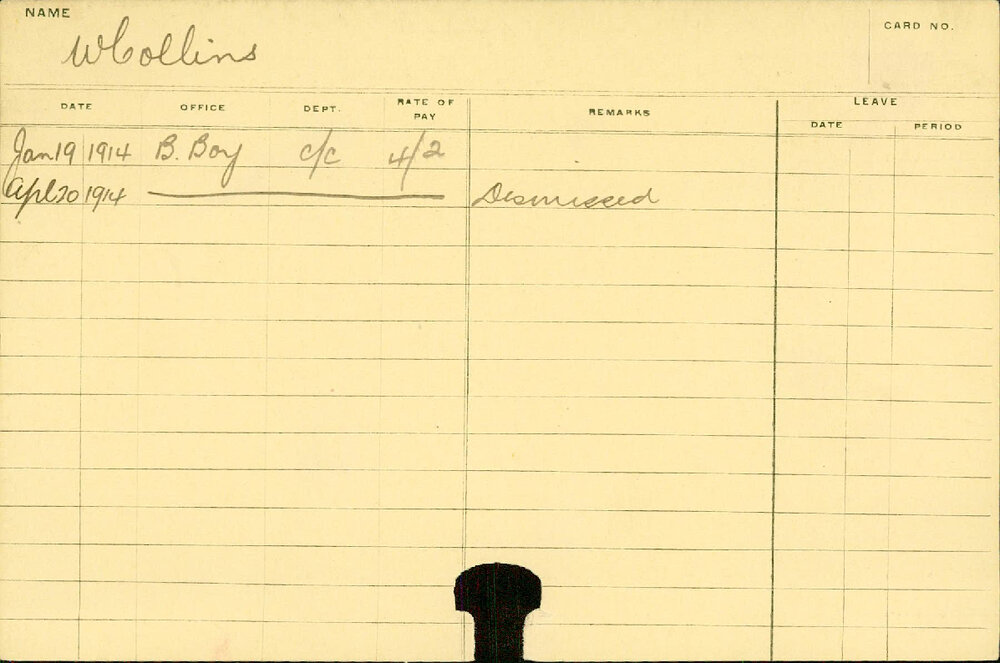 NAME
W Collins
CARD NO.
DATE OFFICE DEPT. RATE OF PAY REMARKS LEAVE
DATE PERIOD
Jan 19 1914 B. Boy c/c 4/2
Apl 20 1914 Dismissed